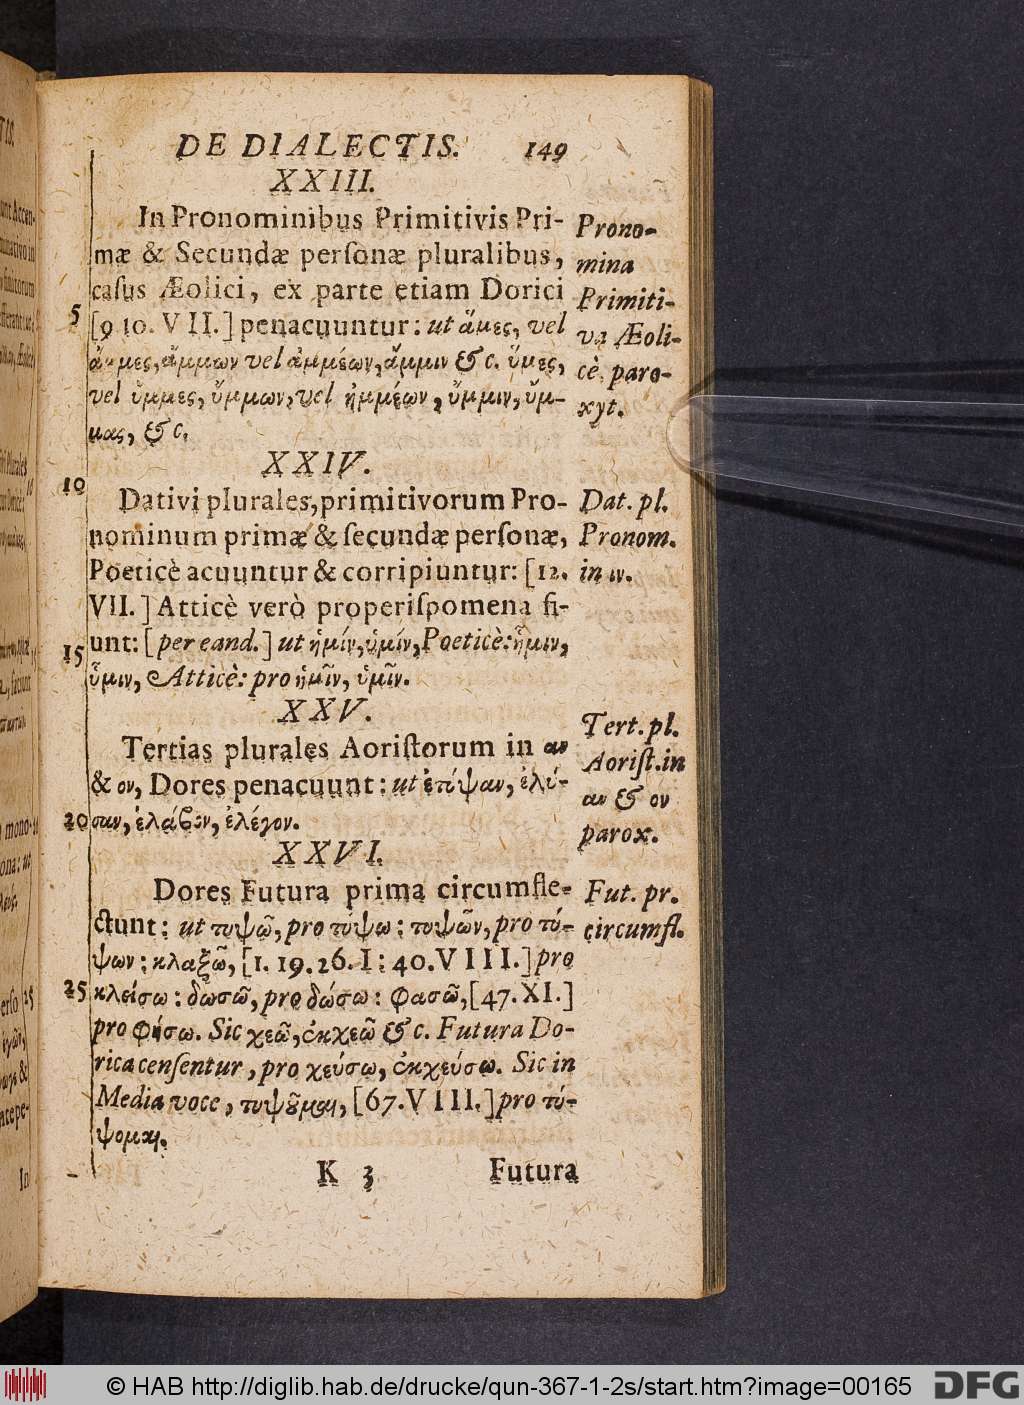 DE DIALECTIS. 149
XXIII.
In Pronominibus Primitivis Pri-
mæ & Secundæ perſonæ pluralibus,
caſus Æolici, ex parte etiam Dorici
5 [9 10. VII.] penacuuntur: ut ἄμες, vel
ἄμμες, ἄμμων vel ἀμμέων, ἄμμιν & c. ὕμες,
vel ὔμμες, ὔμμων, vel ἠμμέων, ὔμμιν, ὔμ-
μας, & c.
Prono-
mina
Primiti-
va Æoli-
cè paro-
xyt.
XXIV.
10 Dativi plurales, primitivorum Pro-
nominum primæ & ſecundæ perſonæ,
Poeticè acuuntur & corripiuntur: [12.
VII.] Atticè verò properiſpomena fi-
15 unt: [per eand.] ut ἡμίν, ὑμίν, Poeticè: ἧμιν,
ὗμιν, Atticè: pro ἡμῖν, ὑμῖν.
Dat. pl.
Pronom.
in ιν.
XXV.
Tertias plurales Aoriſtorum in αν
& ον, Dores penacuunt: ut ἐτύψαν, ἐλύ-
20 σαν, ἐλάβον, ἐλέγον.
Tert. pl.
Aoriſt. in
αν & ον
parox.
XXVI.
Dores Futura prima circumfle-
ctunt: ut τυψῶ, pro τύψω: τυψῶν, pro τύ-
ψων: κλαξῶ, [1. 19. 26. I: 40. VIII.] pro
25 κλείσω: δωσῶ, pro δώσω: φασῶ, [47. XI.]
pro φήσω. Sic χεῶ, ἐκχεῶ & c. Futura Do-
rica cenſentur, pro χεύσω, ἐκχεύσω. Sic in
Media voce, τυψοῦμαι, [67. VIII.] pro τύ-
ψομαι.
Fut. pr.
circumfl.
K 3 Futura
© HAB http://diglib.hab.de/drucke/qun-367-1-2s/start.htm?image=00165 DFG